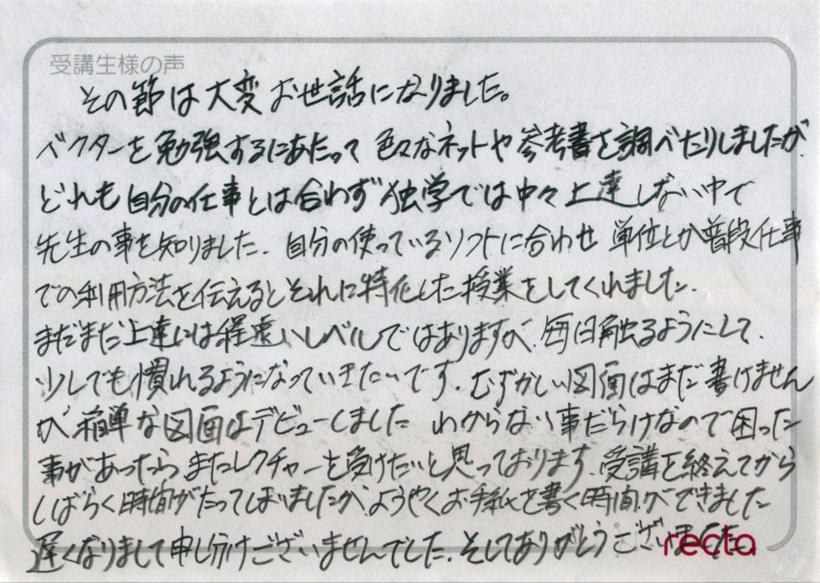 受講生様の声
その節は大変お世話になりました。
ベクターを勉強するにあたって 色々なネットや参考書を調べたりしましたが、
どれも自分の仕事とは合わず独学では中々上達しない中で
先生の事を知りました。自分の使っているソフトに合わせ 単位とか普段仕事
での利用方法を伝えるとそれに特化した授業をしてくれました.
まだまだ上達には程遠いレベルではありますが、毎日触るようにして、
少しでも慣れるようになっていきたいです. むずかしい図面はまだ書けません
が 簡単な図面はデビューしました わからない事だらけなので困った
事があったら またレクチャーを受けたいと思っております. 受講を終えてから
しばらく時間がたってしまいましたが、ようやくお手紙を書く時間ができました
遅くなりまして申し分けございませんでした. そしてありがとうございました
recta